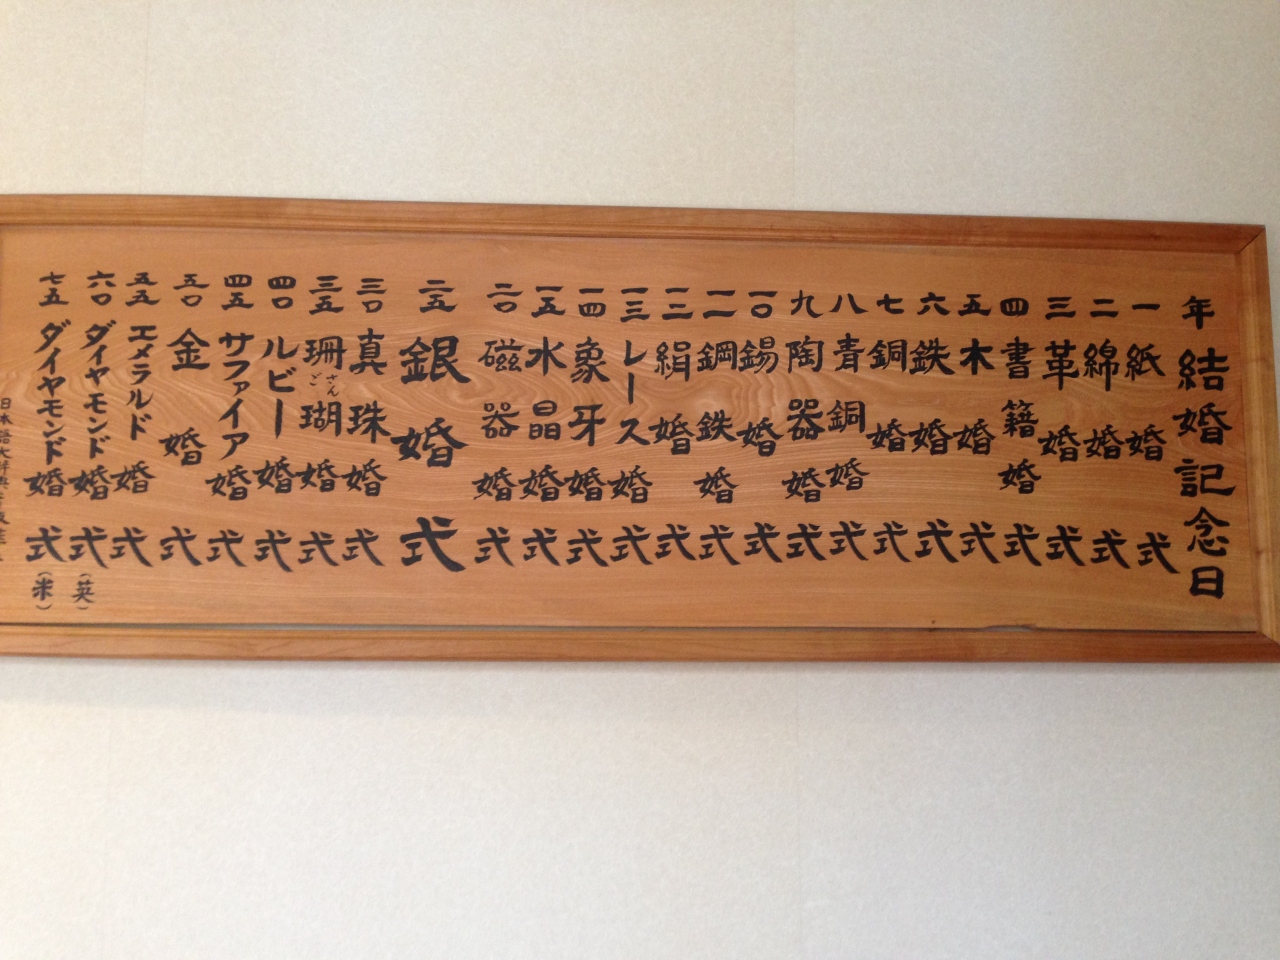 年 結婚記念日
一 紙婚式
二 綿婚式
三 革婚式
四 書籍婚式
五 木婚式
六 鉄婚式
七 銅婚式
八 青銅婚式
九 陶器婚式
一〇 錫婚式
一一 鋼鉄婚式
一二 絹婚式
一三 レース婚式
一四 象牙婚式
一五 水晶婚式
二〇 磁器婚式
二五 銀婚式
三〇 真珠婚式
三五 珊瑚婚式
さんご
四〇 ルビー婚式
四五 サファイア婚式
五〇 金婚式
五五 エメラルド婚式
六〇 ダイヤモンド婚式(英)
七五 ダイヤモンド婚式(米)
日本語大辞典